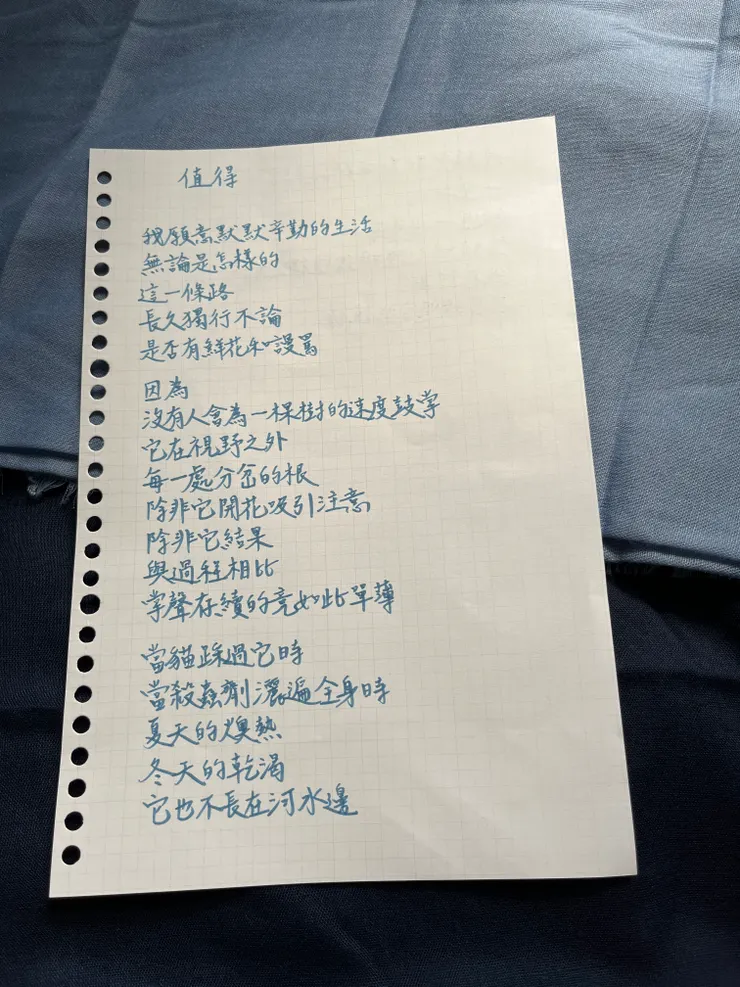 值得
我願意默默辛勤的生活
無論是怎樣的
這一條路
長久獨行不論
是否有鮮花和謾罵
因為
沒有人會為一棵樹的速度鼓掌
它在視野之外
每一處分岔的根
除非它開花吸引注意
除非它結果
與過程相比
掌聲存續的竟如此單薄
當貓踩過它時
當殺蟲劑灑遍全身時
夏天的燠熱
冬天的乾渴
它也不長在河水邊